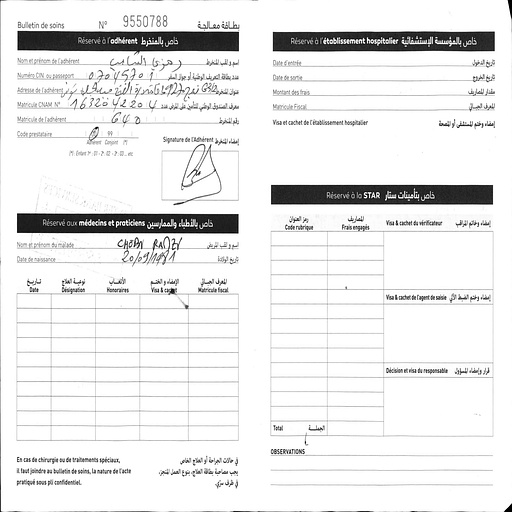 Bulletin de soins N° 9550788 بطاقة معالجة
Réservé à l'adhérent خاص بالمنخرط
Nom et prénom de l'adhérent رمزي الشايب إسم و لقب المنخرط
Numéro CIN, ou passeport 07045701 عدد بطاقة التعريف الوطنية أو جواز السفر
Adresse de l'adhérent عنوان المنخرط
Matricule CNAM N° 1632042204 معرف الصندوق الوطني للتأمين على المرض عدد
Matricule de l'adhérent 640 رقم المنخرط
Code prestataire 99
Adhérent Conjoint (*)
(*) : Enfant 1er : 01 - 2e : 02 - 3e : 03 ... etc
Signature de l'Adhérent إمضاء المنخرط
Réservé aux médecins et praticiens خاص بالأطباء والممارسين
Nom et prénom du malade CHEBY RAMZY إسم و لقب المريض
Date de naissance 20/09/1981 تاريخ الولادة
تاريخ نوعية العلاج الأتعاب الإمضاء و الختم المعرف الجبائي
Date Désignation Honoraires Visa & cachet Matricule fiscal
En cas de chirurgie ou de traitements spéciaux,
il faut joindre au bulletin de soins, la nature de l'acte
pratiqué sous pli confidentiel.
في حالات الجراحة أو العلاج الخاص
يجب مصاحبة بطاقة العلاج، بنوع العمل المنجز،
في ظرف سري.
Réservé à l'établissement hospitalier خاص بالمؤسسة الإستشفائية
Date d'entrée تاريخ الدخول
Date de sortie تاريخ الخروج
Montant des frais مقدار المصاريف
Matricule Fiscal المعرف الجبائي
Visa et cachet de l'établissement hospitalier إمضاء وختم المستشفى أو المصحة
Réservé à la STAR خاص بتأمينات ستار
رمز العنوان المصاريف
Code rubrique Frais engagés
Visa & cachet du vérificateur إمضاء وخاتم المراقب
Visa & cachet de l'agent de saisie إمضاء وختم الضبط الآلي
Décision et visa du responsable قرار وإمضاء المسؤول
Total الجملة
OBSERVATIONS